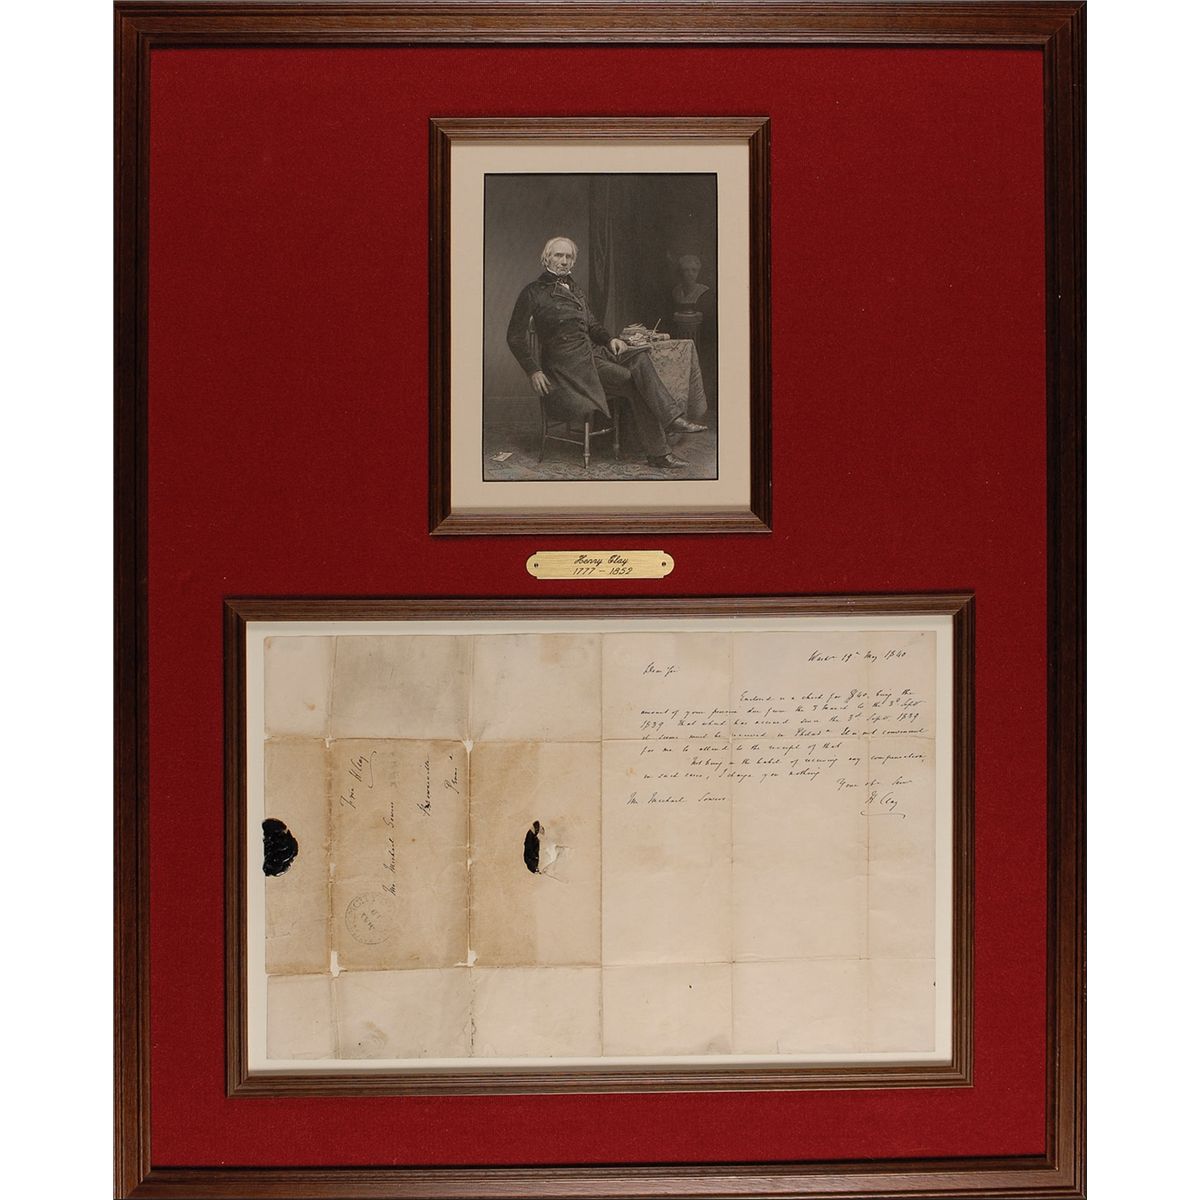 Henry Clay
1777 - 1852
19th May 1840
Dear Sir
Enclosed is a check for $40, being the
amount of your pension due from the 3 March to the 3d Sept
1839 That which has accrued since the 3d Sept 1839
it seems must be received in Philada It is not convenient
for me to attend to the receipt of that
Not being in the habit of receiving any compensation,
in such cases, I charge you nothing
Your ob. Serv
H Clay
Mr Michael Sowers
Free H Clay
Mr Michael Sowers
Brownsville
Penna
MAY
19